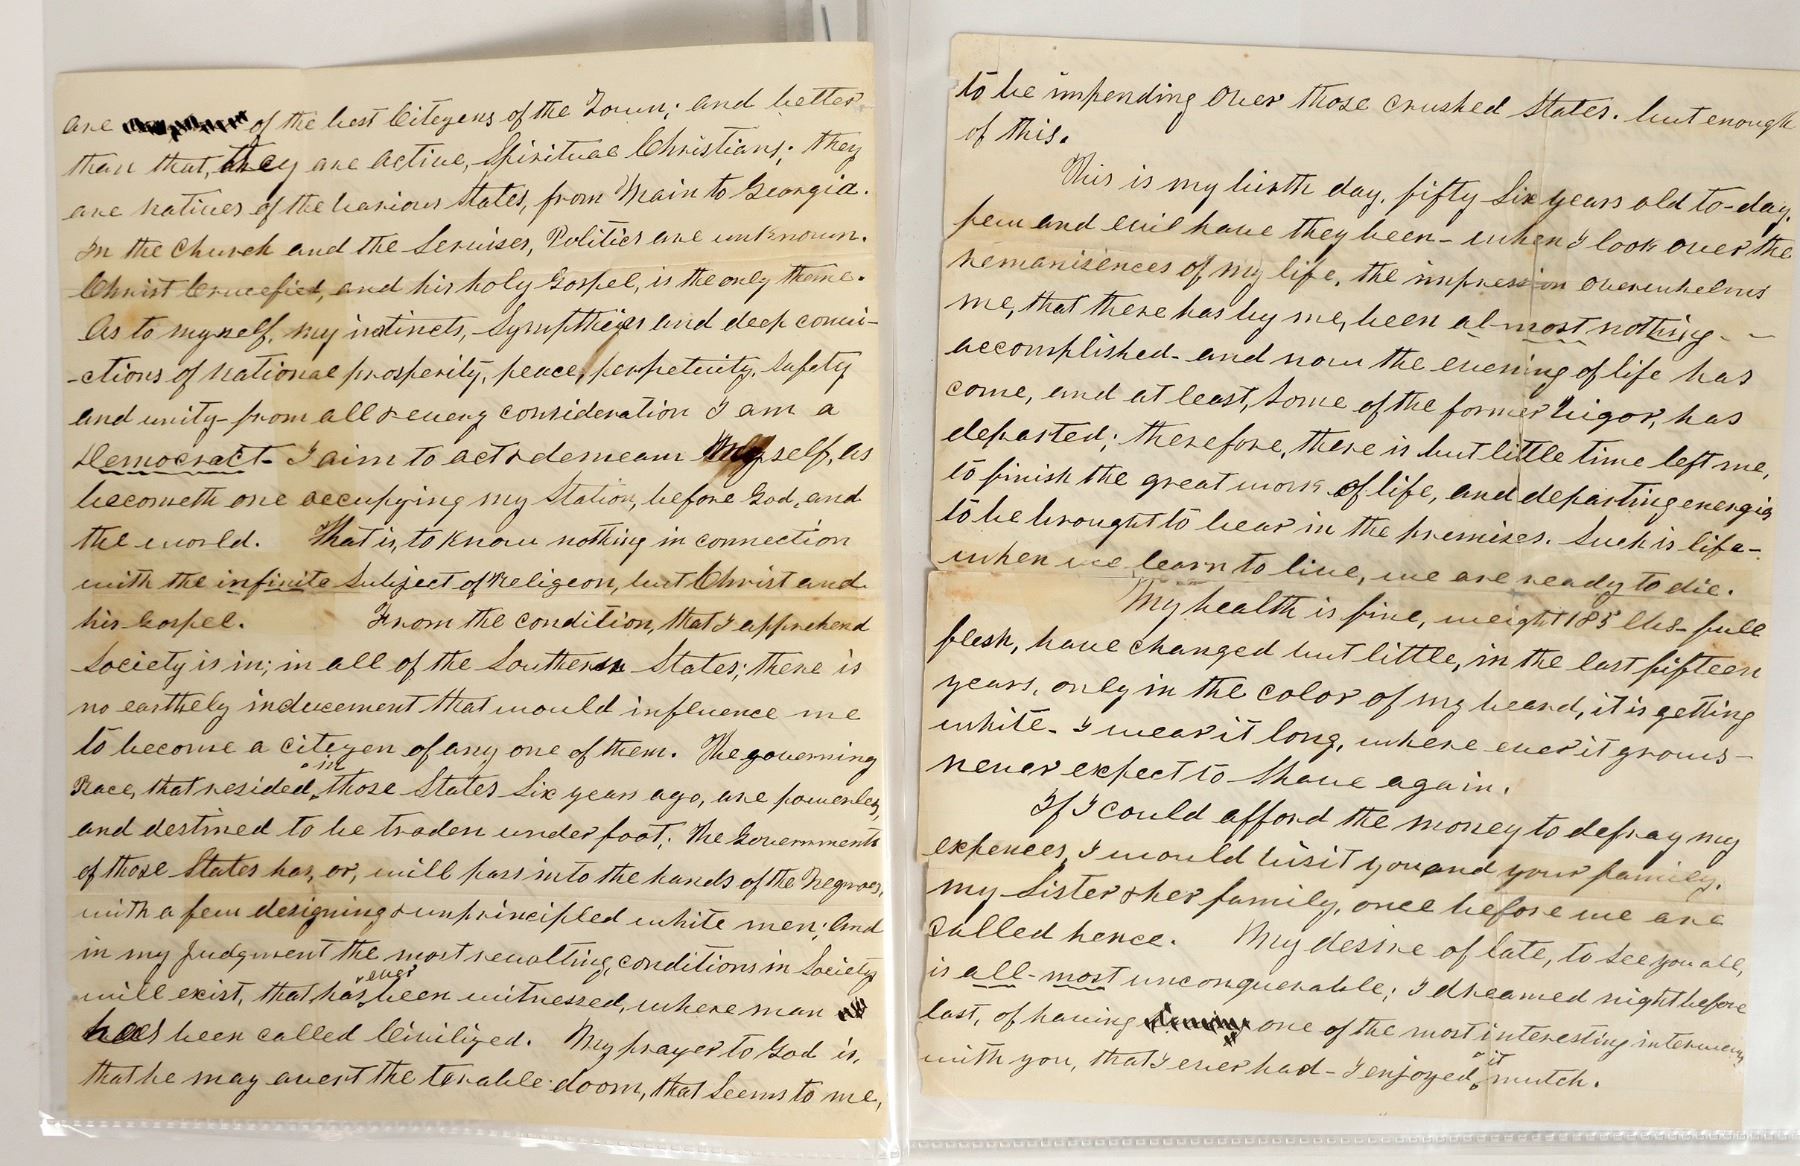 are of the best Citezens of the Town; and better
than that, they are active, Spiritual Christians; they
are natives of the various States, from Main to Georgia.
In the Church and the Servises, Politics are unknown.
Christ Crucefied, and his holy Gospel, is the only theme.
As to myself, my instincts, Sympthies and deep convi-
-ctions of national prosperity, peace, perpetuity, Safety
and unity - from all & every consideration I am a
Democract - I aim to act & demean Myself, as
becometh one occupying my Station, before God, and
the world. That is, to know nothing in connection
with the infinite Subject of Religeon, but Christ and
his Gospel. From the condition, that I apprehend
Society is in; in all of the Southern States; there is
no earthely inducement that would influence me
to become a citezen of any one of them. The governing
Race, that resided in those States Six years ago, are powerless,
and destined to be troden under foot; The Governments
of those States has, or, will pass into the hands of the Negroes,
with a few designing & unprincipled white men; And
in my Judgment the most revolting, conditions in Society
will exist, that has ever been witnessed, where man
has been called Civilized. My prayer to God is,
that he may avert the terable doom, that Seems to me,
to be impending over those crushed States. but enough
of this.
This is my birth day. fifty Six years old to-day.
few and evil have they been - when I look over the
remanisences of my life, the impression overwhelms
me, that there has by me, been al-most nothing - -
accomplished - and now the evening of life has
come, and at least, Some of the former Vigor, has
departed; therefore, there is but little time left me,
to finish the great work of life, and departing energies
to be brought to bear in the premises. Such is life -
when we learn to live, we are ready to die.
My health is fine, weight 185 lbs - full
flesh, have changed but little, in the last fifteen
years, only in the color of my beard, it is getting
white - I wear it long, where ever it grows -
never expect to Shave again.
If I could afford the money to defray my
expences, I would visit you and your family,
my Sister & her family, once before we are
called hence. My desire of late, to see you all,
is all-most unconquerable; I dreamed night before
last, of having one of the most interesting interviews
with you, that I ever had - I enjoyed it mutch.